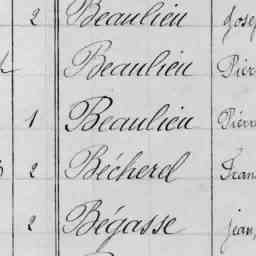 2 Beaulieu Jose
Beaulieu Pier
1 Beaulieu Pierre
2 Bécherel Fran
2 Bégasse Jean,